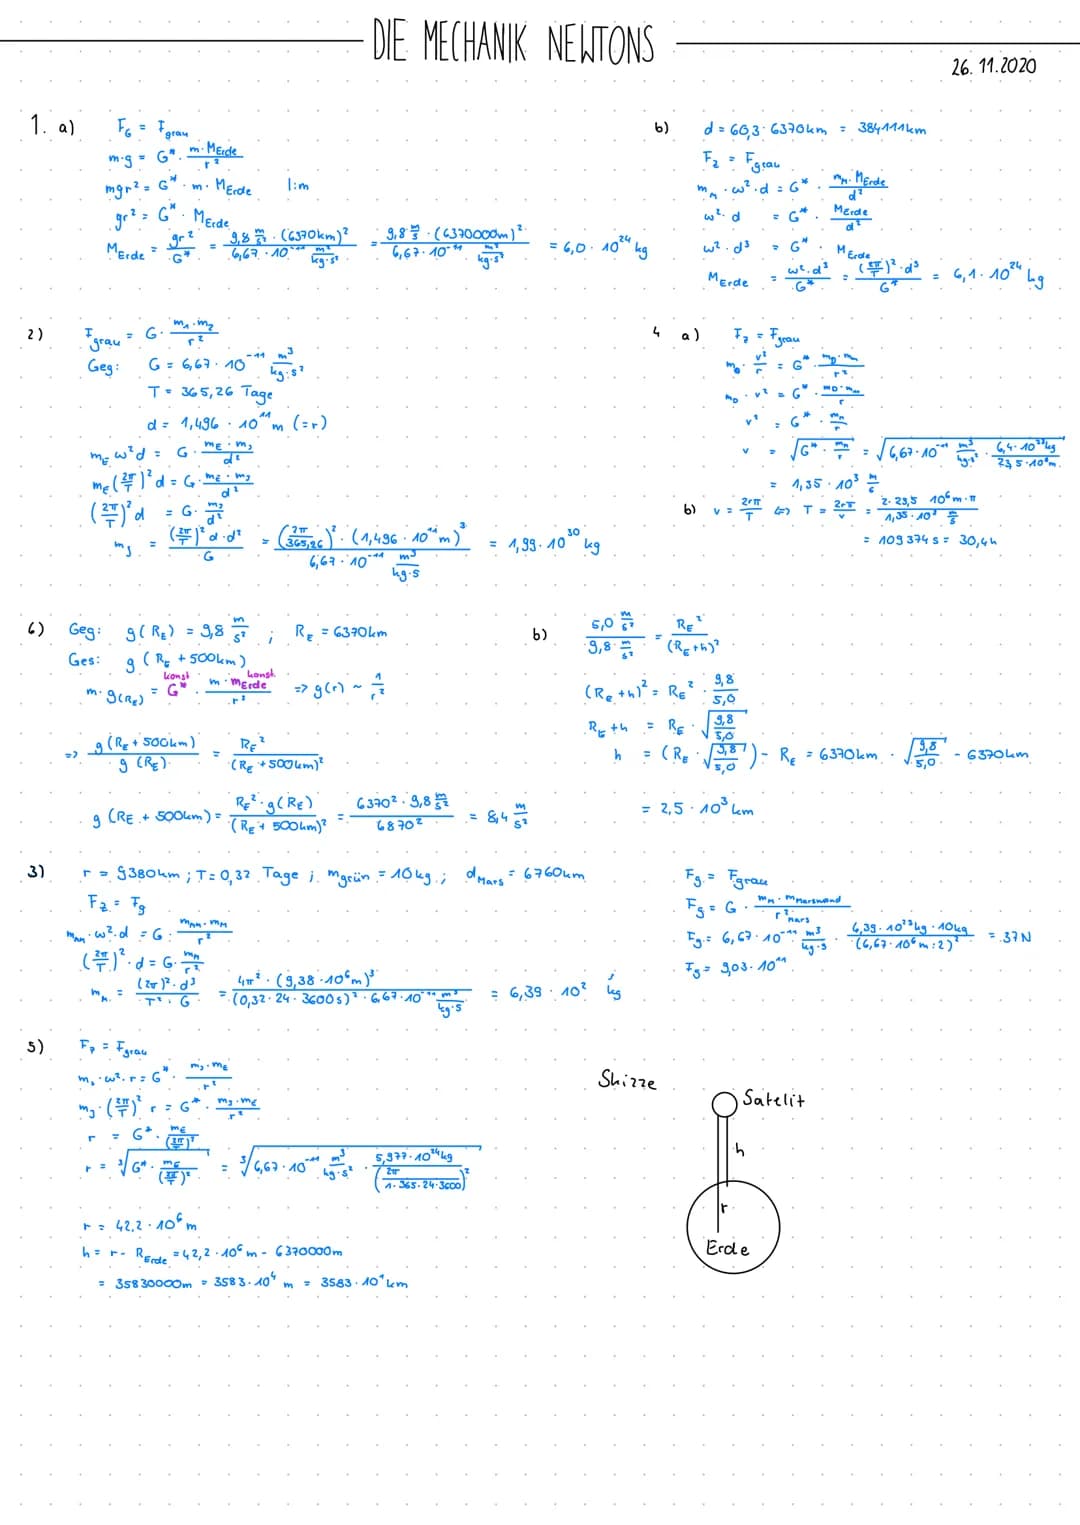 DIE MECHANIK NEWTONS
26.11.2020
1. a) F_G = F_grav
m·g = G* · (m·M_Erde)/r²
mgr² = G* · m · M_Erde |:m
gr² = G* · M_Erde
M_Erde = gr²/G* = (9,8 m/s² · (6370km)²)/(6,67·10^-11 m³/(kg·s²)) = (9,8 m/s · (6370000m)²)/(6,67·10^-11 m³/(kg·s²)) = 6,0 · 10^24 kg
b) d = 60,3 · 6370km = 384111km
F_z = F_grav
m_M · ω² · d = G* · (m_M · M_Erde)/d²
ω² · d = G* · M_Erde/d²
ω² · d³ = G* · M_Erde
M_Erde = (ω²·d³)/G* = ((2π/T)²·d³)/G* = 6,1 · 10^24 kg
2) F_grav = G · (m₁·m₂)/r²
Geg: G = 6,67 · 10^-11 m³/(kg·s²)
T = 365,26 Tage
d = 1,496 · 10^11 m (=r)
m_E ω²d = G · (m_E · m_s)/d²
m_E (2π/T)² d = G · (m_E · m_s)/d²
(2π/T)² d = G · m_s/d²
m_s = ((2π/T)² d·d²)/G = ((2π/365,26)² · (1,496 · 10^11 m)³)/(6,67 · 10^-11 m³/(kg·s)) = 1,99 · 10^30 kg
4 a) F_z = F_grav
m_D · v²/r = G* · (m_D · m_m)/r²
m_D · v² = G* · (m_D · m_m)/r
v² = G* · m_m/r
v = √(G* · m_m/r) = √(6,67·10^-11 m³/(kg·s²) · (6,4·10^23 kg)/(23,5·10^6 m))
= 1,35 · 10³ m/s
b) v = 2rπ/T <=> T = 2rπ/v = (2·23,5 10^6 m·π)/(1,35·10³ m/s)
= 109374s = 30,4h
6) Geg: g(R_E) = 9,8 m/s² ; R_E = 6370km
Ges: g (R_E + 500km)
konst konst.
m · g(R_E) = G* · (m · m_Erde)/r² => g(r) ~ 1/r²
=> g(R_E + 500km)/g(R_E) = R_E²/(R_E + 500km)²
g (R_E + 500km) = (R_E² · g(R_E))/(R_E + 500km)² = (6370² · 9,8 m/s²)/6870² = 8,4 m/s²
b) (5,0 m/s²)/(9,8 m/s²) = R_E²/(R_E+h)²
(R_E+h)² = R_E² · 9,8/5,0
R_E+h = R_E · √(9,8/5,0)
h = (R_E · √(9,8/5,0)) - R_E = 6370km · √(9,8/5,0) - 6370km
= 2,5 · 10³ km
3) r = 9380km ; T = 0,32 Tage ; m_grün = 10kg ; d_Mars = 6760km
F_z = F_g
m_MM · ω² · d = G · (m_MM · m_M)/r²
(2π/T)² · d = G · m_M/r²
m_M = ((2π)² · d³)/(T² · G) = (4π² · (9,38 · 10^6 m)³)/((0,32 · 24 · 3600s)² · 6,67·10^-11 m³/(kg·s)) = 6,39 · 10² kg
F_g = F_grav
F_g = G · (m_M · m_Marsmond)/r²_Mars
F_g = 6,67 · 10^-11 m³/(kg·s) · (6,39·10^23 kg·10kg)/(6,67·10^6 m:2)² = 37N
F_g = 9,03 · 10^11
5) F_z = F_grav
m_s · ω² · r = G* · (m_s · m_E)/r²
m_s · (2π/T)² r = G* · (m_s · m_E)/r²
r = G* · m_E/(2π/T)²
r = ³√(G* · m_E/(2π/T)²) = ³√(6,67·10^-11 m³/(kg·s²) · (5,977·10^24 kg)/(2π/(1·365·24·3600))²)
r = 42,2 · 10^6 m
h = r - R_Erde = 42,2 · 10^6 m - 6370000m
= 35830000m = 3583·10^4 m = 3583·10^1 km
Skizze
Satelit
h
r
Erde